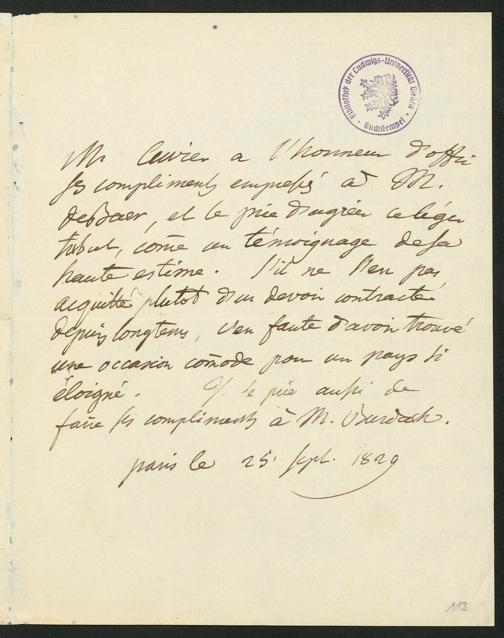 Bibliothek der Ludwigs-Universität Giessen
Buchstempel
Mr Cuvier a l'honneur d'offrir
ses compliments empressés à M.
de Baer, et le prie d'agréer ce léger
tribut, come un témoignage de sa
haute estime. S'il ne s'en pas
acquitté plutot d'un devoir contracté
depuis longtems, c'en faute d'avoir trouvé
une occasion comode pour un pays si
éloigné. Il le prie aussi de
faire ses compliments à M. Burdach.
paris le 25 sept. 1829
113